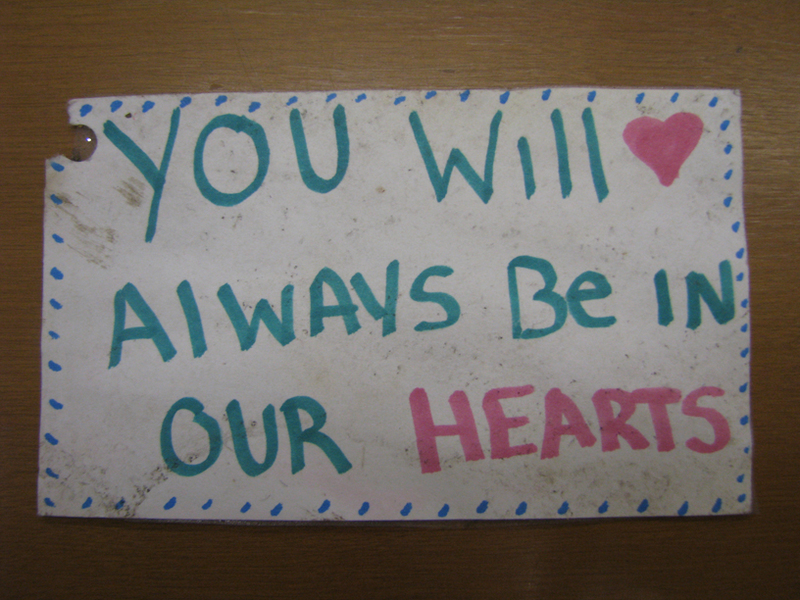 YOU Will
AlWAYS Be IN
OUR HEARTS